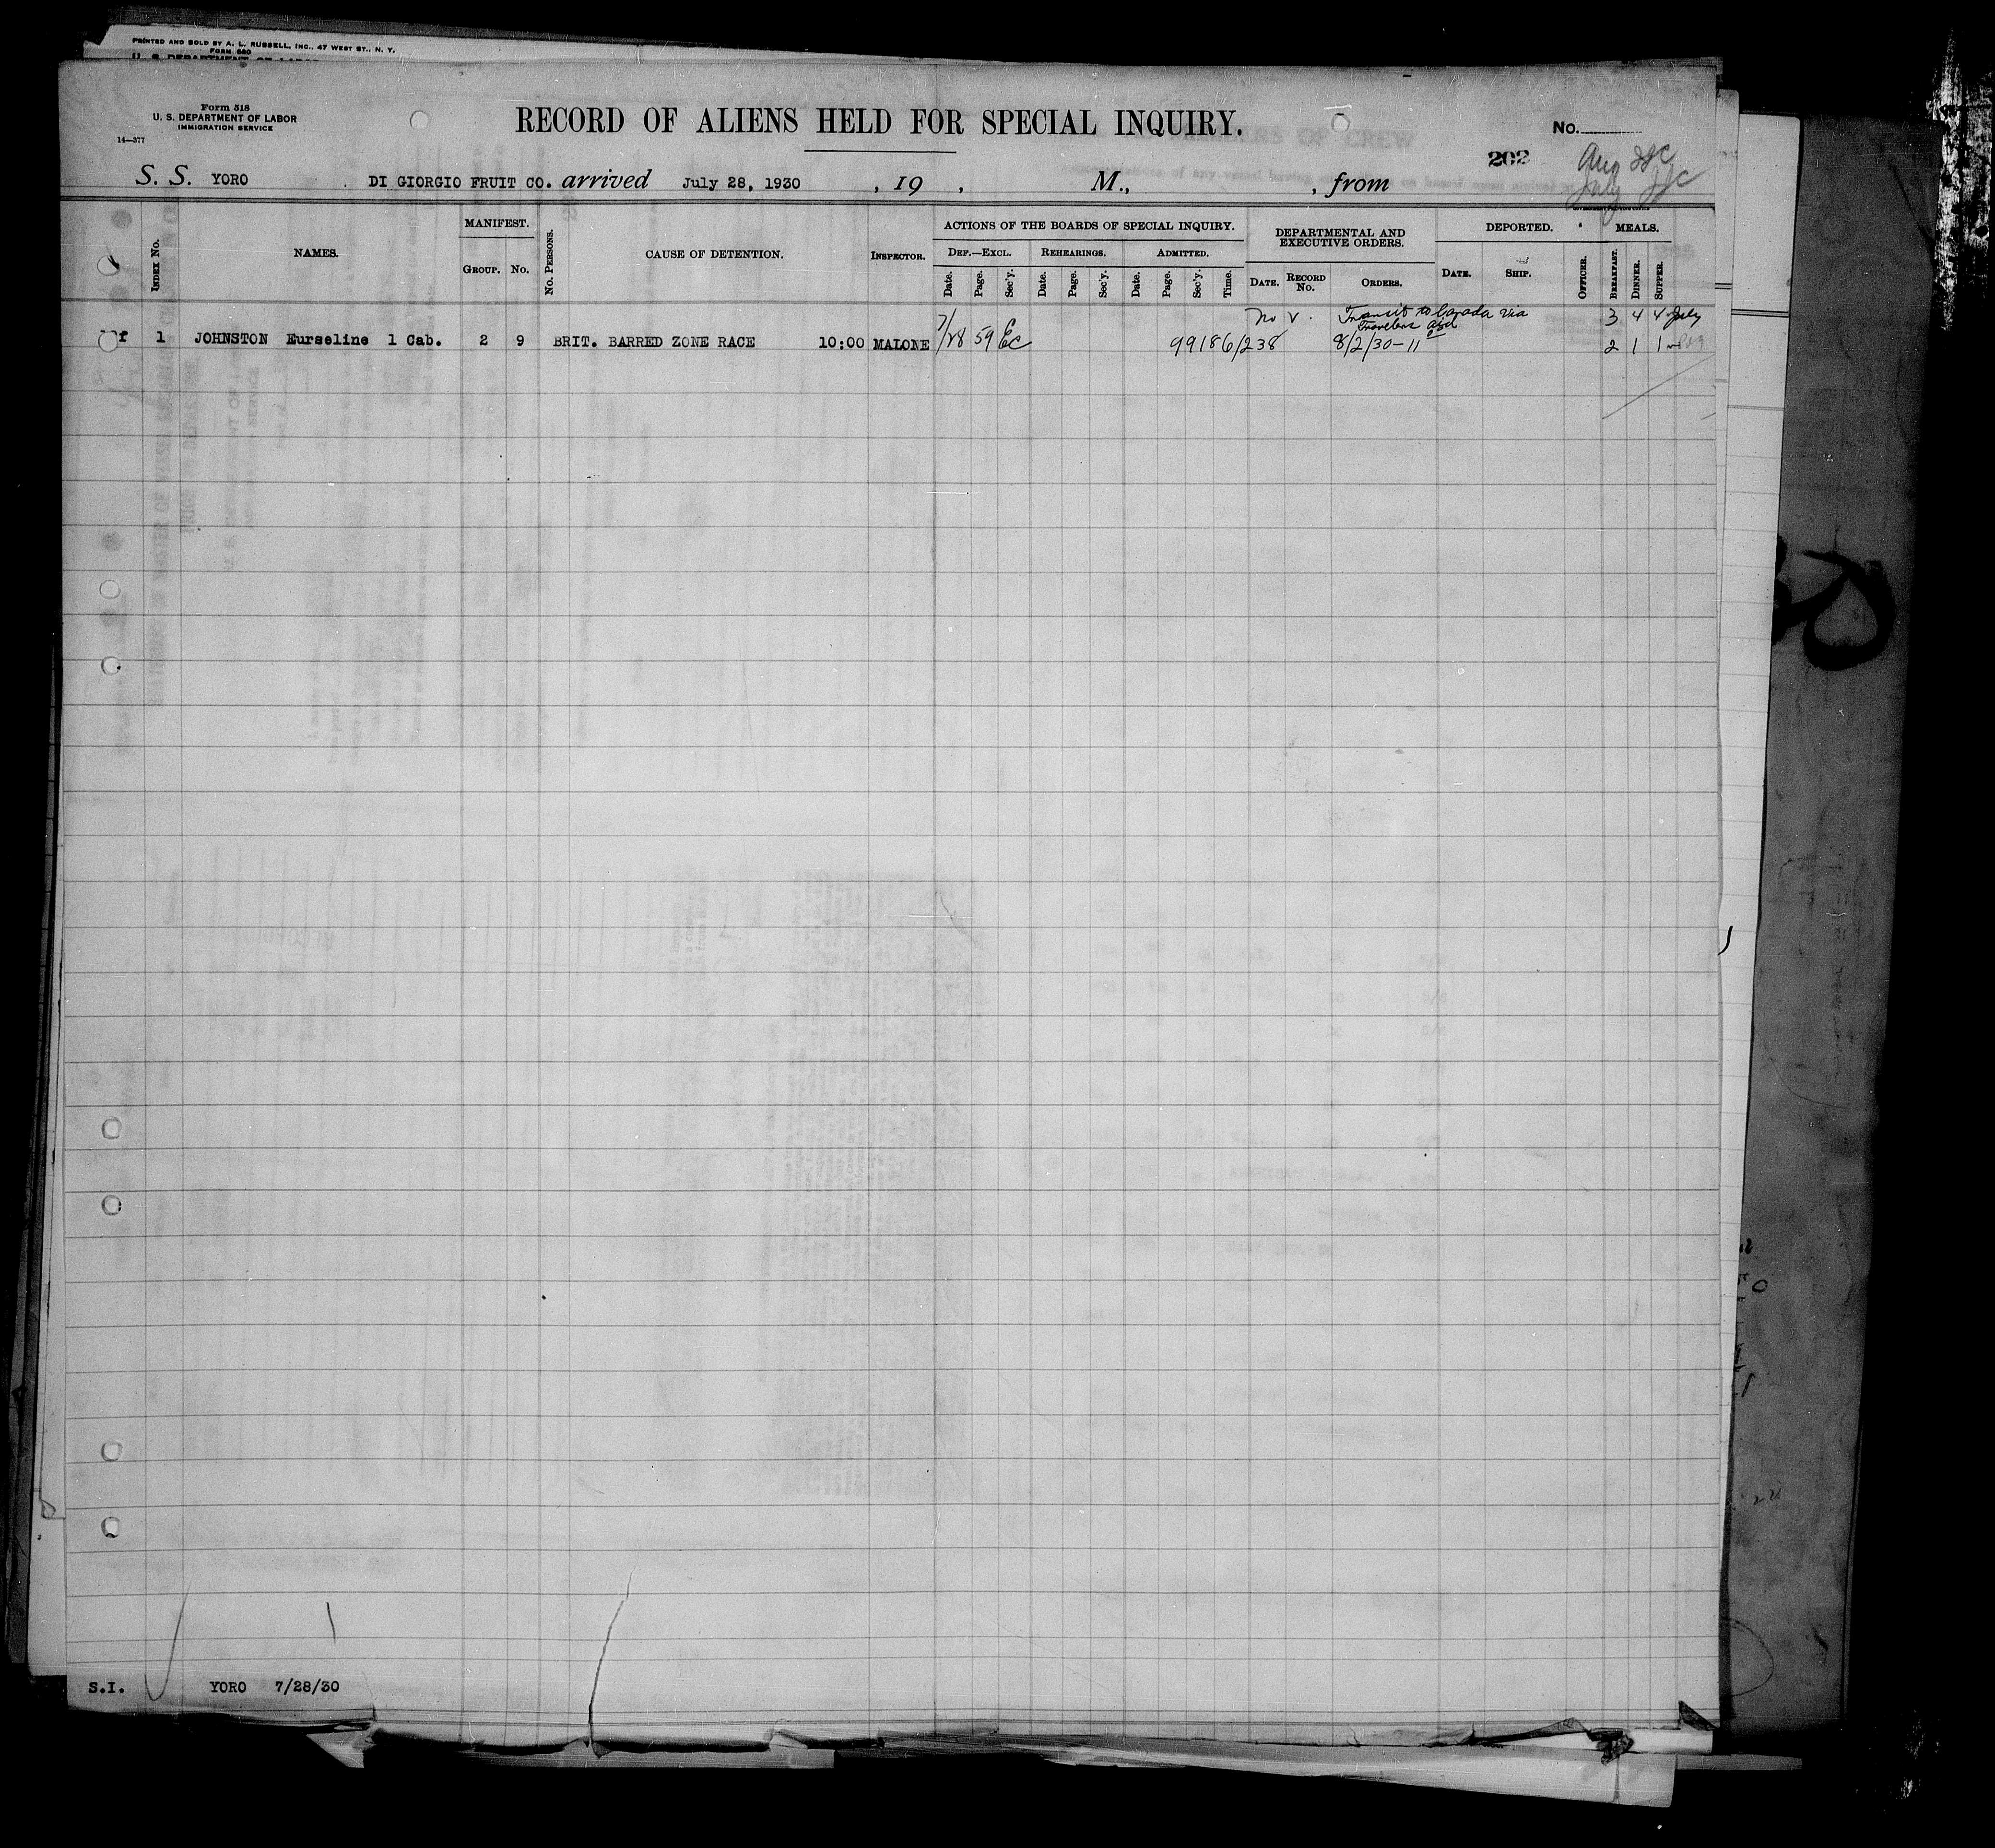 PRINTED AND SOLD BY A. L. RUSSELL, INC., 47 WEST ST., N. Y.
FORM 680
Form 518
U. S. DEPARTMENT OF LABOR
IMMIGRATION SERVICE
14—377
RECORD OF ALIENS HELD FOR SPECIAL INQUIRY.
No.
202
Aug
July
S. S. YORO DI GIORGIO FRUIT CO. arrived July 28, 1930 , 19 , M., , from
INDEX No. NAMES. MANIFEST. GROUP. No. No. PERSONS. CAUSE OF DETENTION. INSPECTOR. ACTIONS OF THE BOARDS OF SPECIAL INQUIRY. DEF.—EXCL. Date. Page. Sec'y. REHEARINGS. Date. Page. Sec'y. ADMITTED. Date. Page. Sec'y. Time. DEPARTMENTAL AND EXECUTIVE ORDERS. DATE. RECORD No. ORDERS. DEPORTED. DATE. SHIP. OFFICER. MEALS. BREAKFAST. DINNER. SUPPER.
No V. Transit to Canada via 3 4 4 July
Travelers aid
f 1 JOHNSTON Eurseline 1 Cab. 2 9 BRIT. BARRED ZONE RACE 10:00 MALONE 7/28 59 Ec 99186/238 8/2/30-11 2 1 1
S.I. YORO 7/28/30